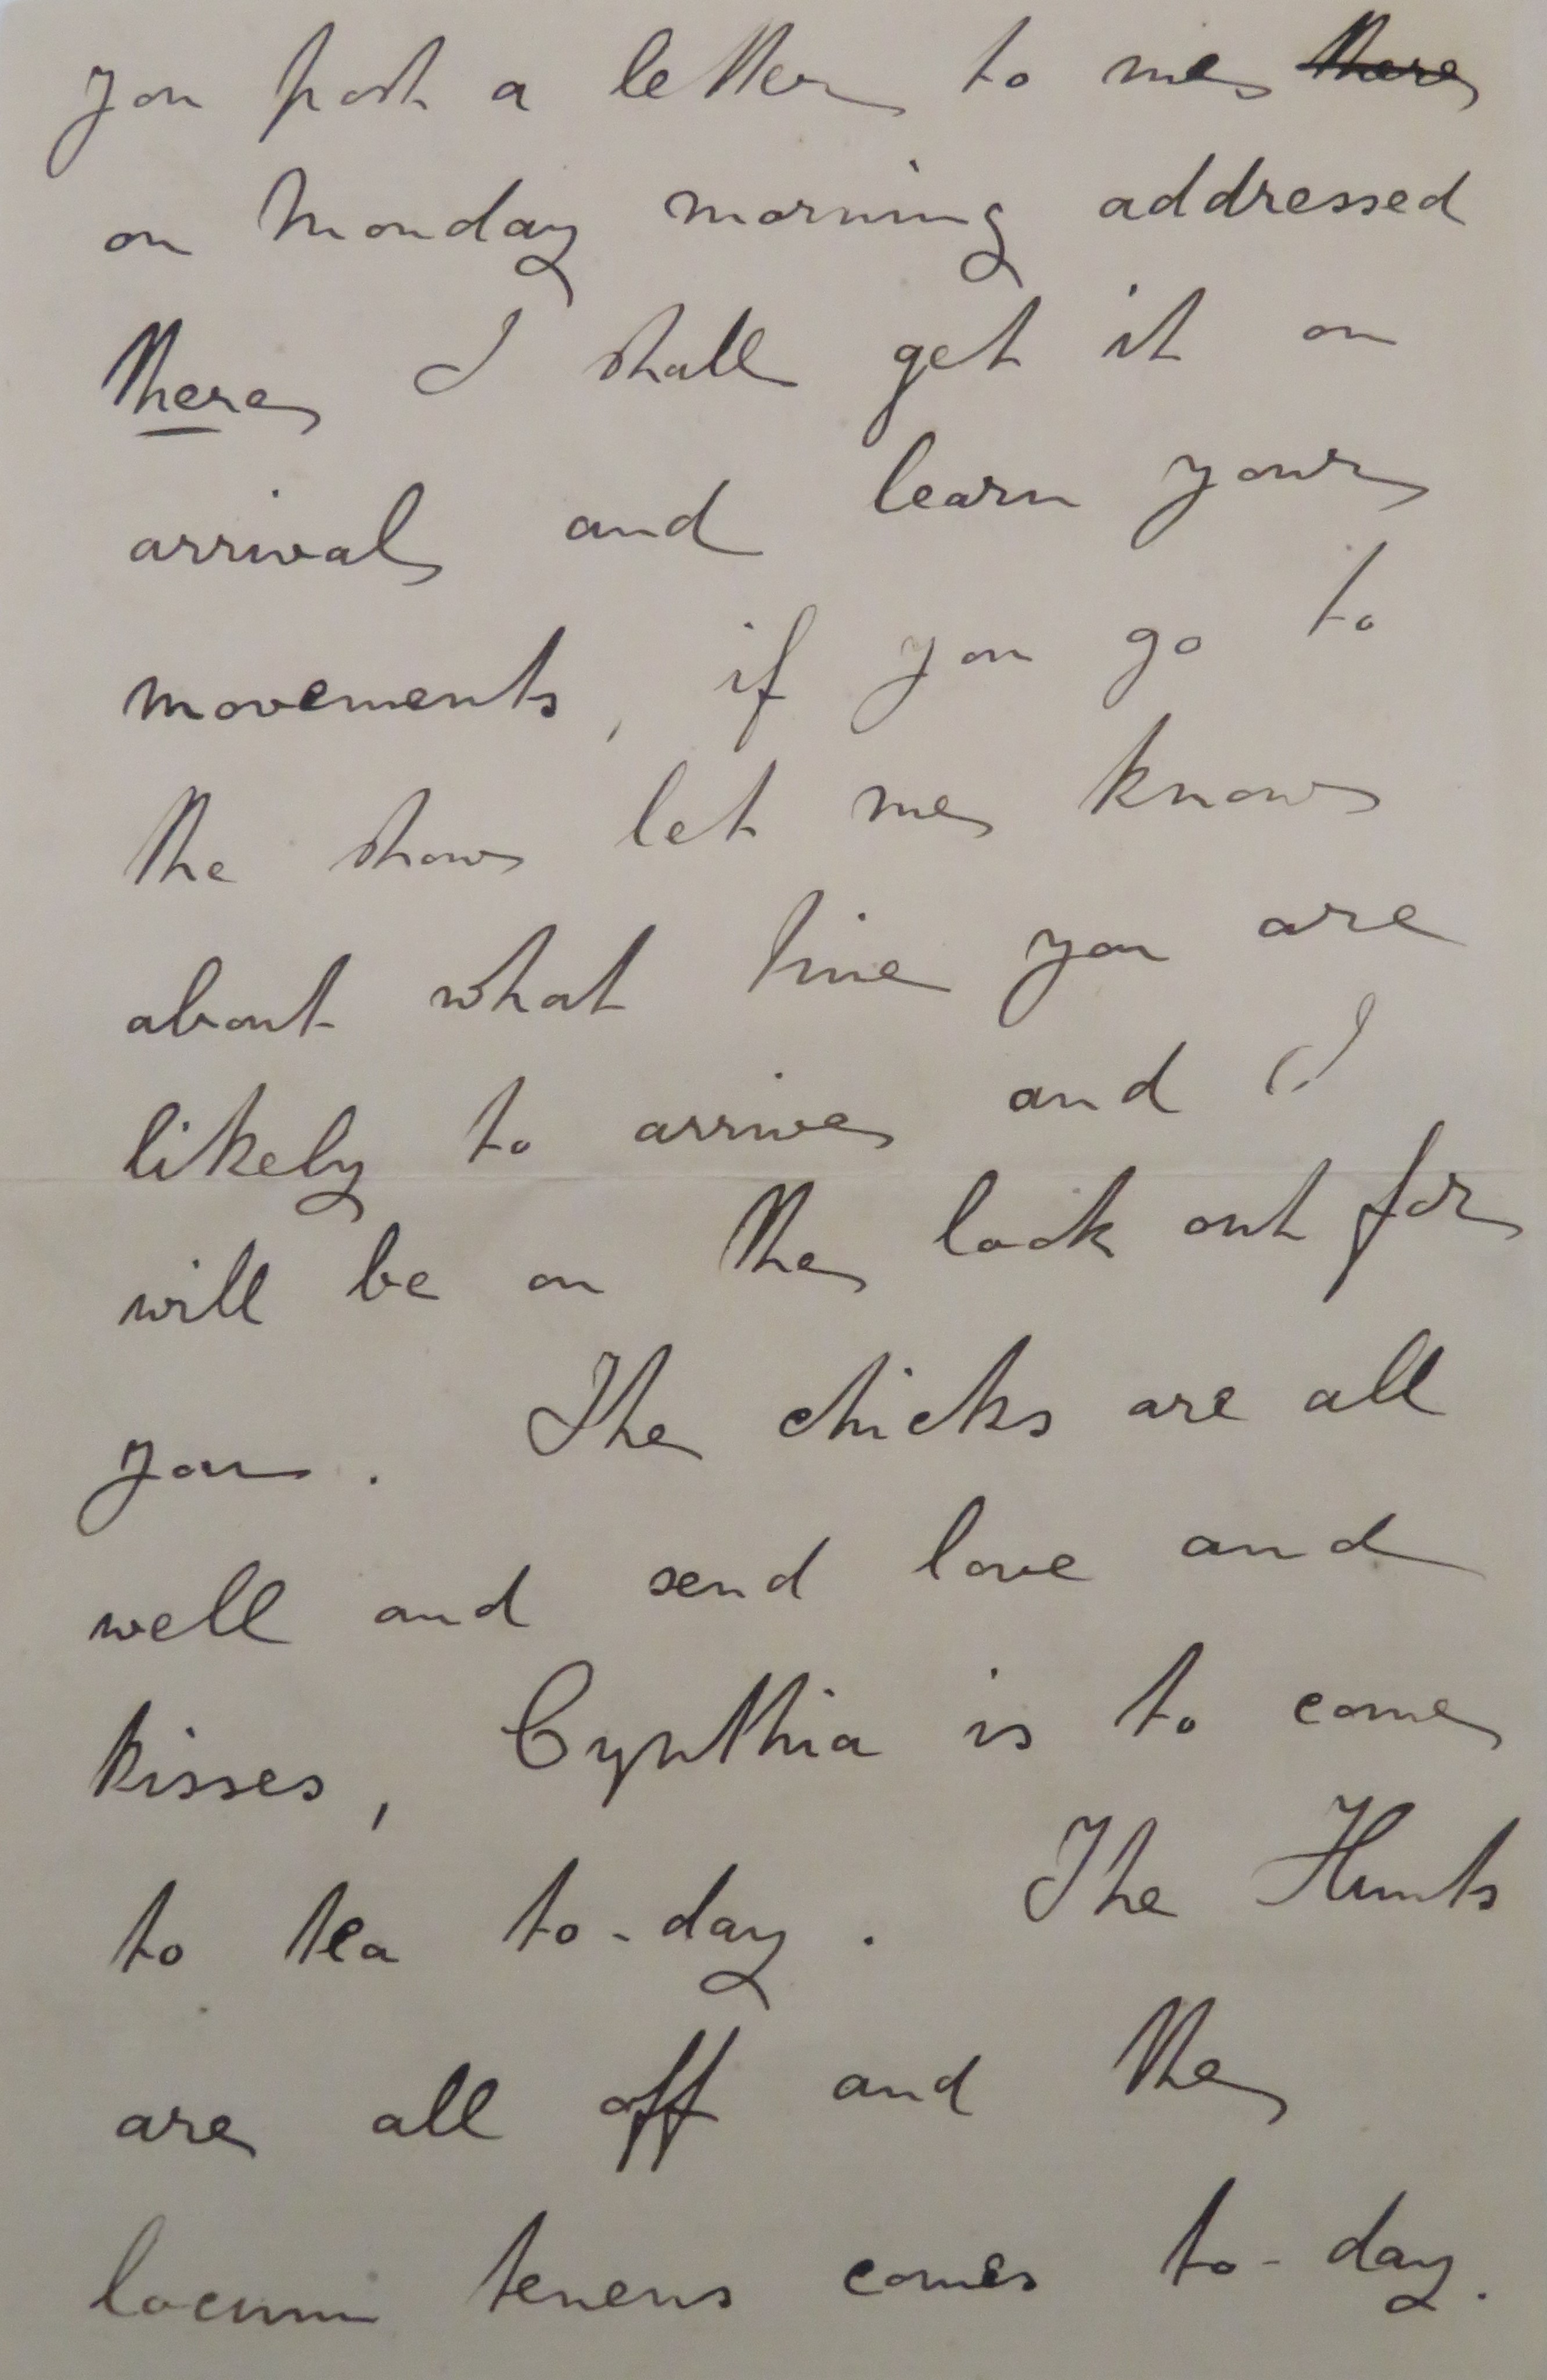 you post a letter to me there
on Monday morning addressed
there I shall get it on
arrival and learn your
movements, if you go to
the show let me know
about what time you are
likely to arrive and I
will be on the look out for
you. The chicks are all
well and send love and
kisses, Cynthia is to come
to tea to-day. The Hunts
are all off and the
locum tenens comes to-day.